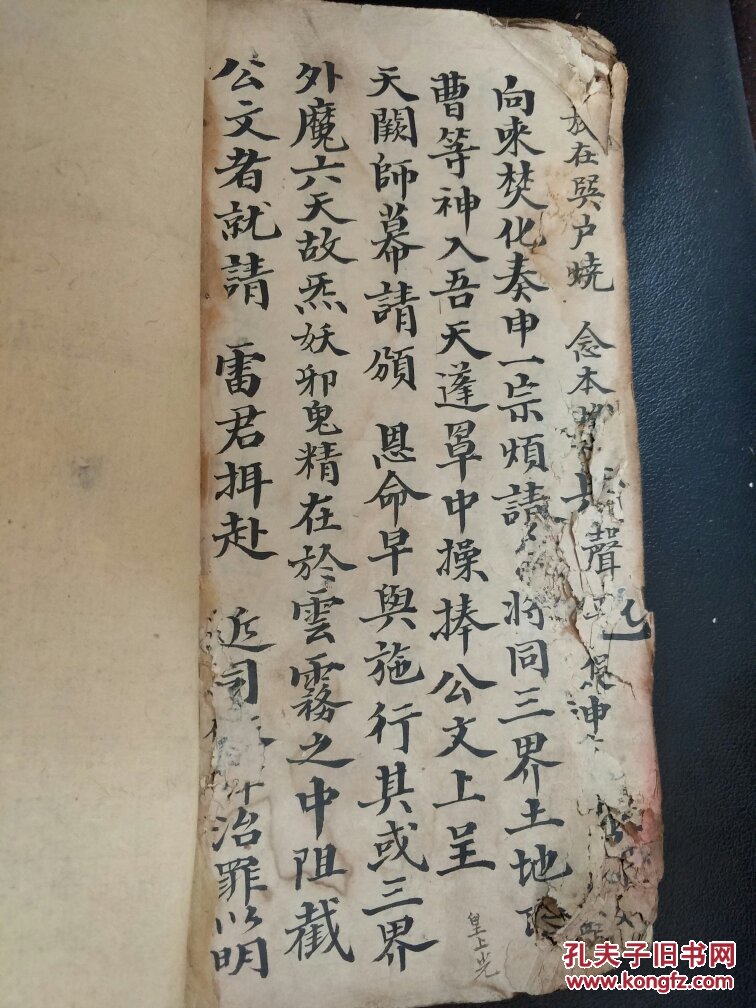 在巽户燒 念本 聲
向来焚化奏申一宗煩請 将同三界土地
曹等神入吾天蓬罩中操捧公文上呈
天闕師幕請頒 恩命早與施行其或三界
外魔六天故炁妖邪鬼精在於雲霧之中阻截
公文者就請 雷君揖赴 近司 治罪以明
皇上光
孔夫子旧书网
www.kongfz.com